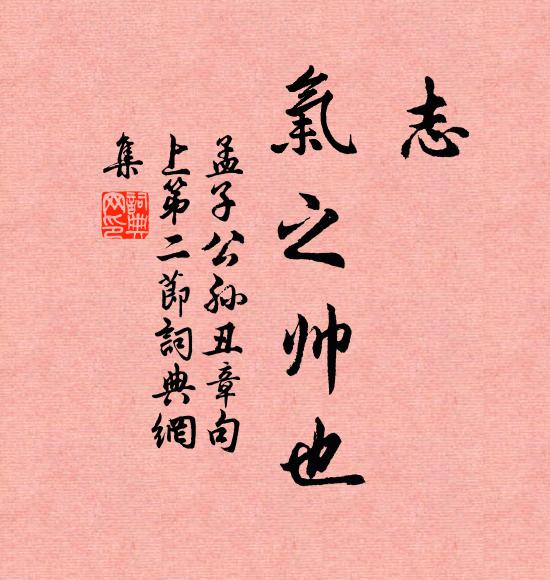 志
氣之帅也
孟子公孙丑章句
上第二節詞典網
集
詞典网印